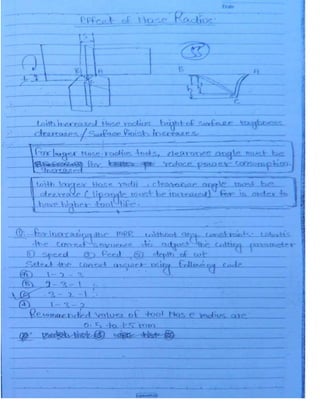 Effect of Nose Radius
55
B
A
B
A
C
with increased Nose radius height of surface roughness
decreases / Surface finish increases
For larger Nose radius tools, clearance angle must be
increased for to reduce power consumption
with larger Nose radii, clearance angle must be
decrease (lip angle must be increased) for in order to
have higher tool life.
Q. For increasing the MRR without any constraints what is
the correct sequence to adjust the cutting parameter
① speed ② feed ③ depth of cut
Select the correct answer using following code
(a) 1-2-3
(b) 2-3-1
(c) 3-2-1
(d) 1-3-2
Recommended values of tool Nose radius are
0.5 to 1.5 mm